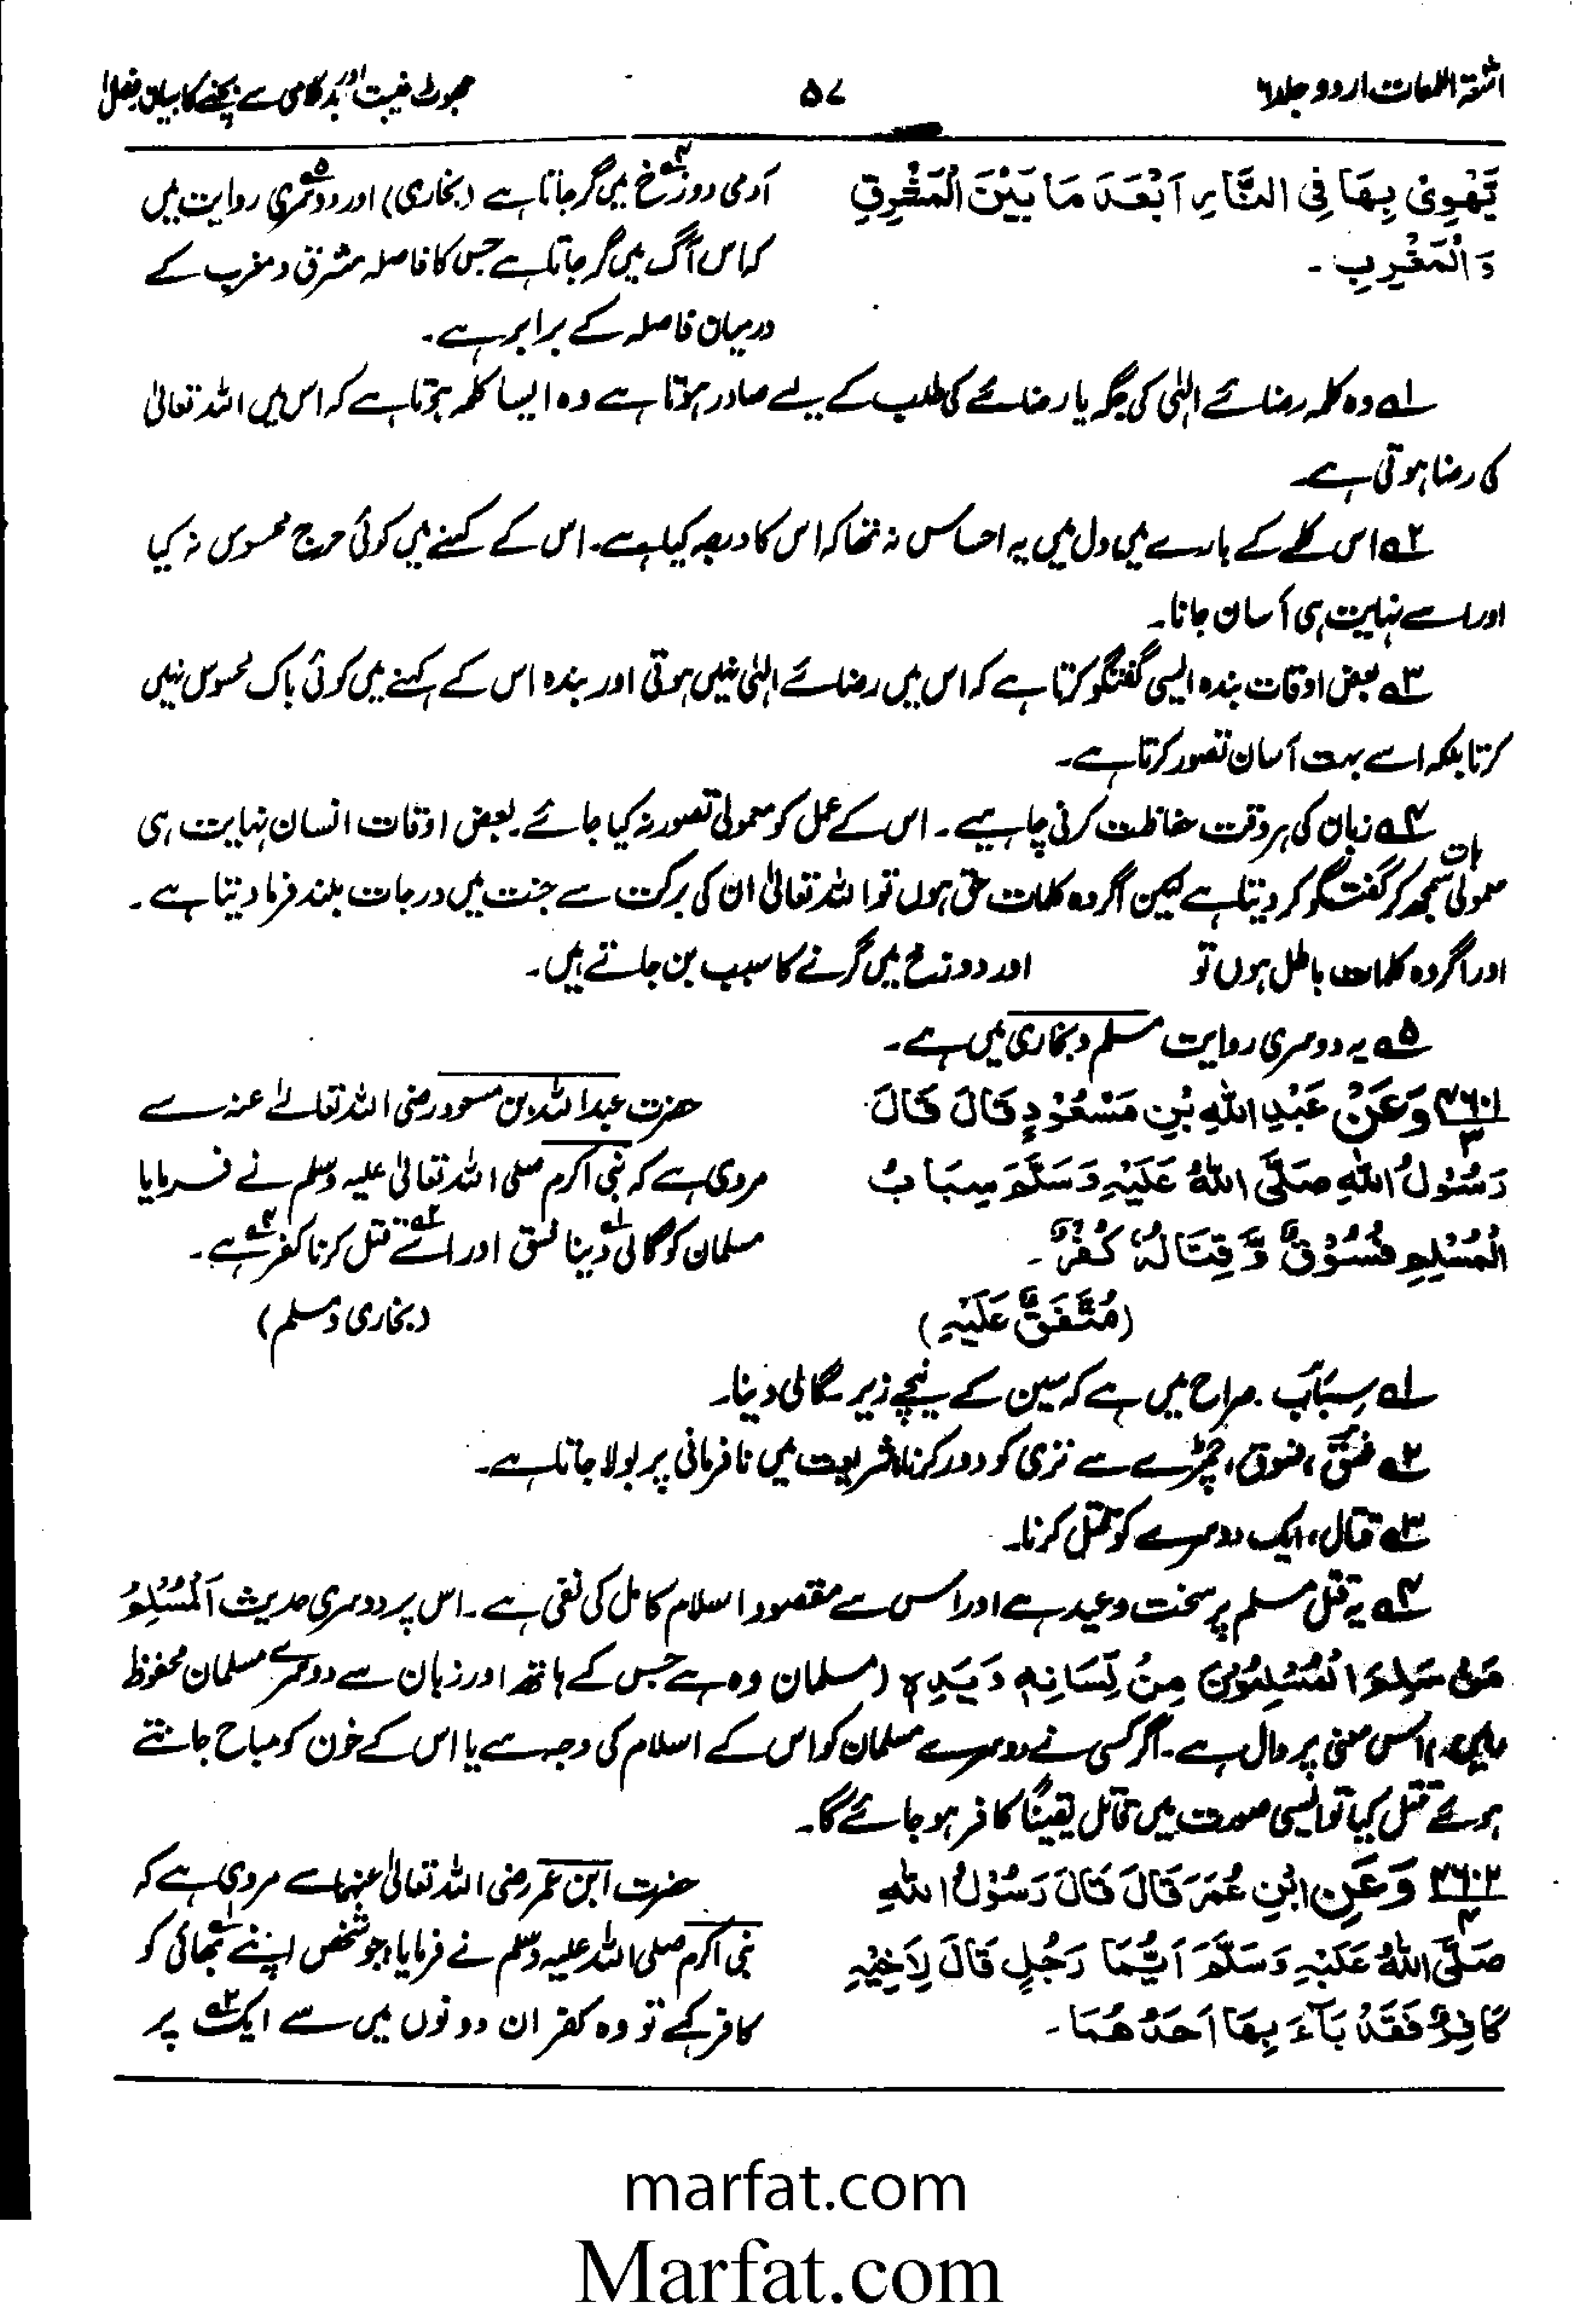 اشعۃ اللمعات اردو جلد ۶
۵۷
جھوٹ غیبت اور بدکلامی سے بچنے کا بیان فصل ۱
يَهْوِیْ بِهَا فِی النَّارِ اَبْعَدَ مَا بَيْنَ الْمَشْرِقِ
وَالْمَغْرِبِ ۔
آدمی دوزخ۴ میں گر جاتا ہے (بخاری) اور دوسری۵ روایت میں
کہ اس آگ میں گر جاتا ہے جس کا فاصلہ مشرق و مغرب کے
درمیان فاصلہ کے برابر ہے۔
۱ وہ کلمہ رضائے الٰہی کی جگہ یا رضائے کی طلب کے لیے صادر ہوتا ہے وہ ایسا کلمہ ہوتا ہے کہ اس میں اللہ تعالیٰ
کی رضا ہوتی ہے۔
۲ اس کلمے کے بارے میں دل میں یہ احساس نہ تھا کہ اس کا درجہ کیا ہے۔ اس کے کہنے میں کوئی حرج محسوس نہ کیا
اور اسے نہایت ہی آسان جانا۔
۳ بعض اوقات بندہ ایسی گفتگو کرتا ہے کہ اس میں رضائے الٰہی نہیں ہوتی اور بندہ اس کے کہنے میں کوئی باک محسوس نہیں
کرتا بلکہ اسے بہت آسان تصور کرتا ہے۔
۴ زبان کی ہر وقت حفاظت کرنی چاہیے۔ اس کے عمل کو معمولی تصور نہ کیا جائے۔ بعض اوقات انسان نہایت ہی
معمولی بات سمجھ کر گفتگو کر دیتا ہے لیکن اگر وہ کلمات حق ہوں تو اللہ تعالیٰ ان کی برکت سے جنت میں درجات بلند فرما دیتا ہے۔
اور اگر وہ کلمات باطل ہوں تو اور دوزخ میں گرنے کا سبب بن جاتے ہیں۔
۵ یہ دوسری روایت مسلم و بخاری میں ہے۔
۴۶۰۱/۳ وَعَنْ عَبْدِ اللهِ بْنِ مَسْعُوْدٍ قَالَ قَالَ
رَسُوْلُ اللهِ صَلَّى اللهُ عَلَيْهِ وَسَلَّمَ سِبَابُ
الْمُسْلِمِ فُسُوْقٌ وَّقِتَالُهٗ كُفْرٌ ۔
(مُتَّفَقٌ عَلَيْهِ)
حضرت عبداللہ بن مسعود رضی اللہ تعالےٰ عنہ سے
مروی ہے کہ نبی اکرم صلی اللہ تعالیٰ علیہ وسلم نے فرمایا
مسلمان کو گالی۱ دینا فسق۲ اور اسے۳ قتل کرنا کفر۴ ہے۔
(بخاری و مسلم)
۱ سِبَابٌ۔ صراح میں ہے کہ سین کے نیچے زیر گالی دینا۔
۲ فسقٌ، فسوق، چمڑے سے تری کو دور کرنا شریعت میں نافرمانی پر بولا جاتا ہے۔
۳ قتال، ایک دوسرے کو قتل کرنا۔
۴ یہ قتل مسلم پر سخت وعید ہے اور اس سے مقصود اسلام کامل کی نفی ہے۔ اس پر دوسری حدیث اَلْمُسْلِمُ
مَنْ سَلِمَ الْمُسْلِمُوْنَ مِنْ لِّسَانِهٖ وَيَدِهٖ (مسلمان وہ ہے جس کے ہاتھ اور زبان سے دوسرے مسلمان محفوظ
رہیں۔) اس معنی پر دال ہے۔ اگر کسی نے دوسرے مسلمان کو اس کے اسلام کی وجہ سے یا اس کے خون کو مباح جانتے
ہوئے قتل کیا تو ایسی صورت میں قاتل یقیناً کافر ہو جائے گا۔
۴۶۰۲/۴ وَعَنِ ابْنِ عُمَرَ قَالَ قَالَ رَسُوْلُ اللهِ
صَلَّى اللهُ عَلَيْهِ وَسَلَّمَ اَيُّمَا رَجُلٍ قَالَ لِاَخِيْهِ
كَافِرٌ فَقَدْ بَآءَ بِهَا اَحَدُهُمَا۔
حضرت ابن عمر رضی اللہ تعالیٰ عنہما سے مروی ہے کہ
نبی اکرم صلی اللہ علیہ وسلم نے فرمایا، جو شخص اپنے۱ بھائی کو
کافر کہے تو وہ کفر ان دونوں میں سے ایک۲ پر
marfat.com
Marfat.com